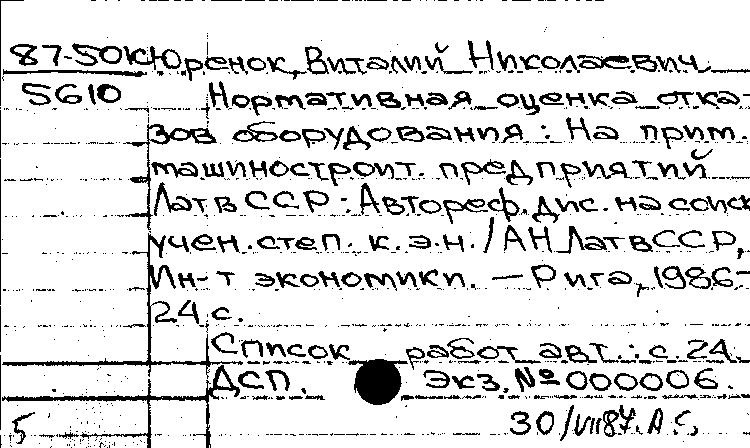 87-50к Юренок, Виталий Николаевич
5610 Нормативная оценка отка
зов оборудования : На прим.
машиностроит. предприятий
ЛатвССР : Автореф. дис. на соиск
учен. степ. к. э. н. / АН ЛатвССР,
Ин-т экономики. — Рига, 1986-
24 с.
Список работ авт.: с. 24.
ДСП. Экз. № 000006.
5 30/VII87.